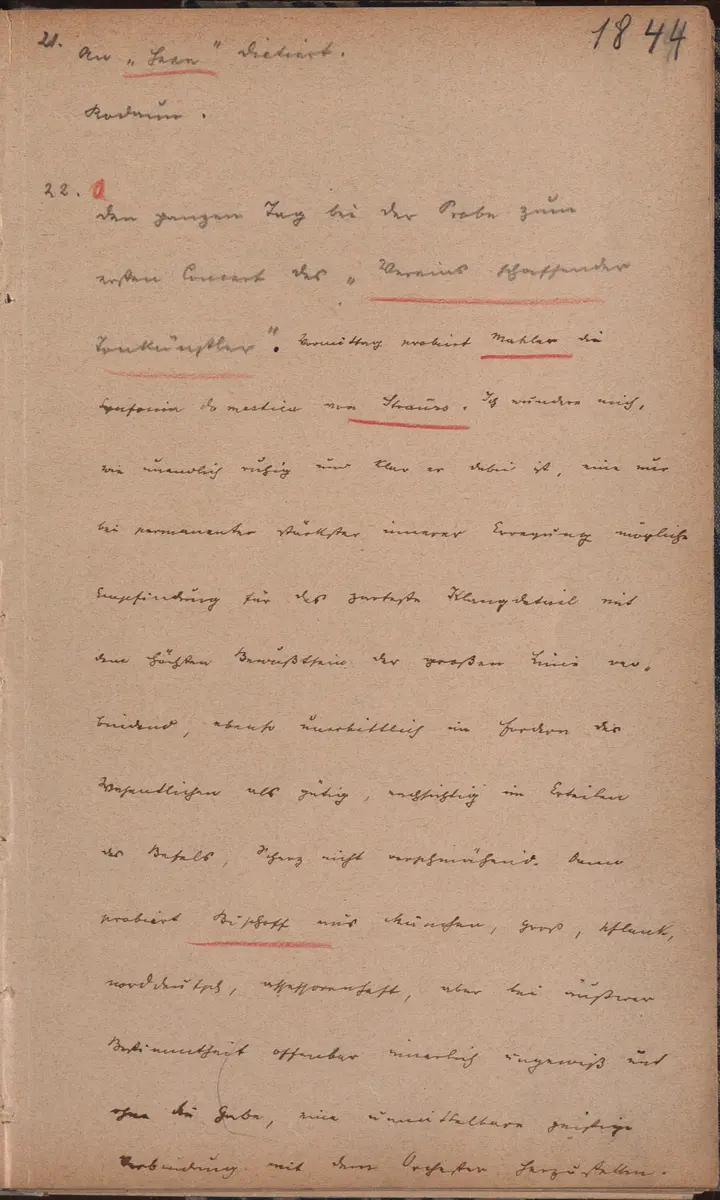 1844
21. An „Sean" dictiert.
Rodaun.
22. 0
Den ganzen Tag bei der Probe zum
ersten Concert des „Vereins schaffender
Tonkünstler". Vormittag probiert Mahler die
Synfonia domestica von Strauss. Ich wundere mich,
wie unendlich ruhig und klar er dabei ist, eine nur
bei permanenter stärkster innerer Erregung mögliche
Empfindung für das zarteste Klangdetail mit
dem höchsten Bewußtsein der großen Linie ver-
bindend, ebenso unerbittlich im Fordern des
Wesentlichen als gütig, nachsichtig im Erteilen
des Befels, Scherz nicht verschmähend. Dann
probiert Bischoff aus München, groß, schlank,
norddeutsch, assessorenhaft, aber bei äußerer
Bestimmtheit offenbar innerlich ungewiß und
ohne die Gabe, eine unmittelbare geistige
Verbindung mit dem Orchester herzustellen.